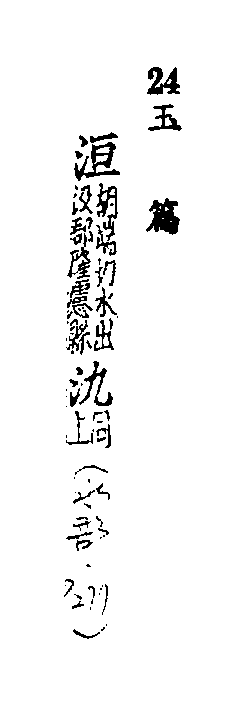 24
玉篇
洹胡端切水出
汲郡隆慮縣
汍同
上
(水部・